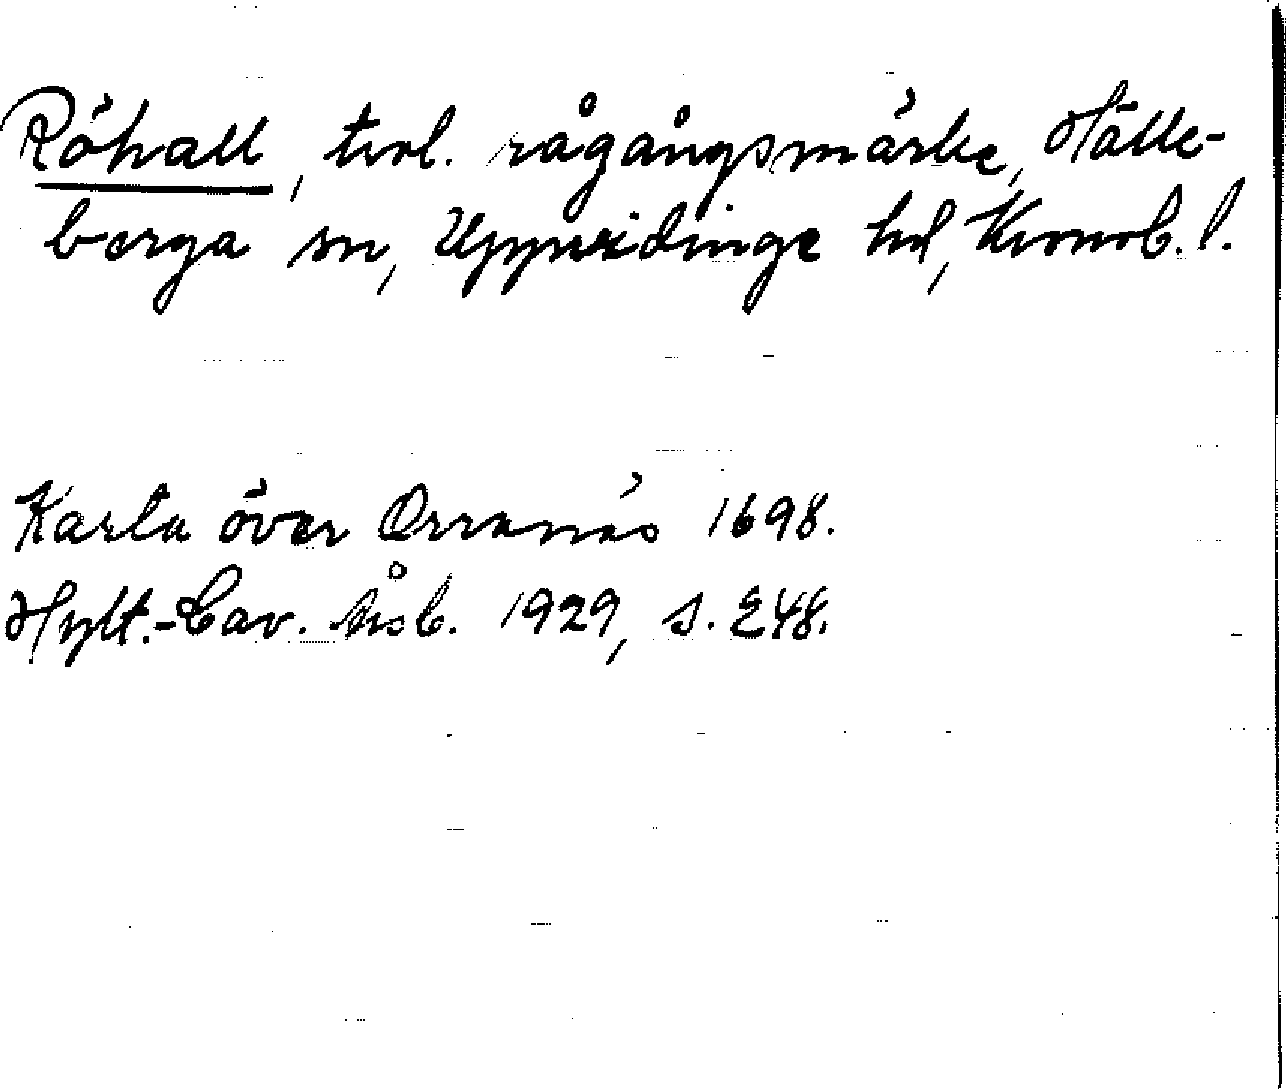 Röhall, trol. rågångsmärke, Hälle-
berga sn, Uppvidinge hd, Kronob. l.
Karta över Orranäs 1698.
Hylt.-Cav. Åsb. 1929, s. 248.